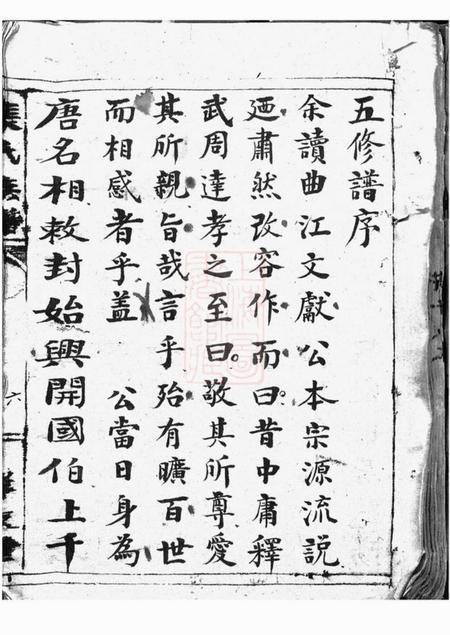 五修譜序
余讀曲江文獻公本宗源流說
廼肅然改容作而曰昔中庸釋
武周達孝之至曰敬其所尊愛
其所親旨哉言乎殆有曠百世
而相感者乎蓋　公當日身為
唐名相敕封始興開國伯上千
氏族譜
六